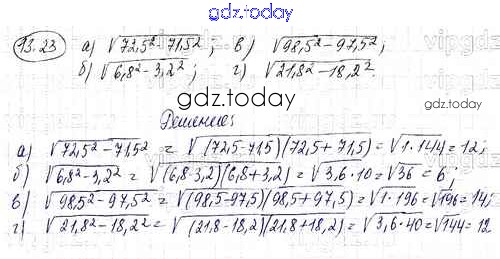 gdz.today
13.23 а) √72,5² − 71,5² ; в) √98,5² − 97,5² ;
б) √6,8² − 3,2² ; г) √21,8² − 18,2² .
gdz.today
Решение:
а) √72,5² − 71,5² = √(72,5 − 71,5)(72,5 + 71,5) = √1 · 144 = 12 ;
б) √6,8² − 3,2² = √(6,8 − 3,2)(6,8 + 3,2) = √3,6 · 10 = √36 = 6 ;
в) √98,5² − 97,5² = √(98,5 − 97,5)(98,5 + 97,5) = √1 · 196 = √196 = 14 ;
г) √21,8² − 18,2² = √(21,8 − 18,2)(21,8 + 18,2) = √3,6 · 40 = √144 = 12